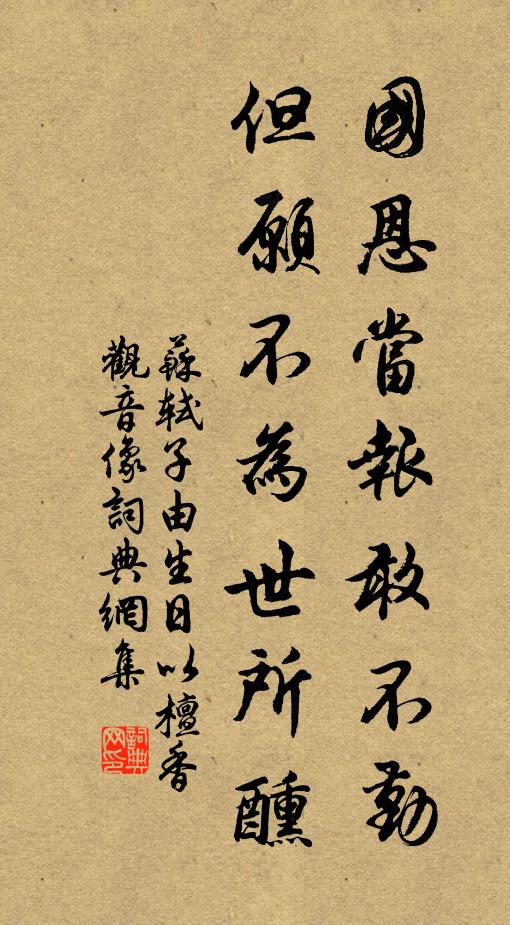 國恩當報敢不勤
但願不為世所醺
蘇軾子由生日以檀香
觀音像詞典網集
詞典
网印